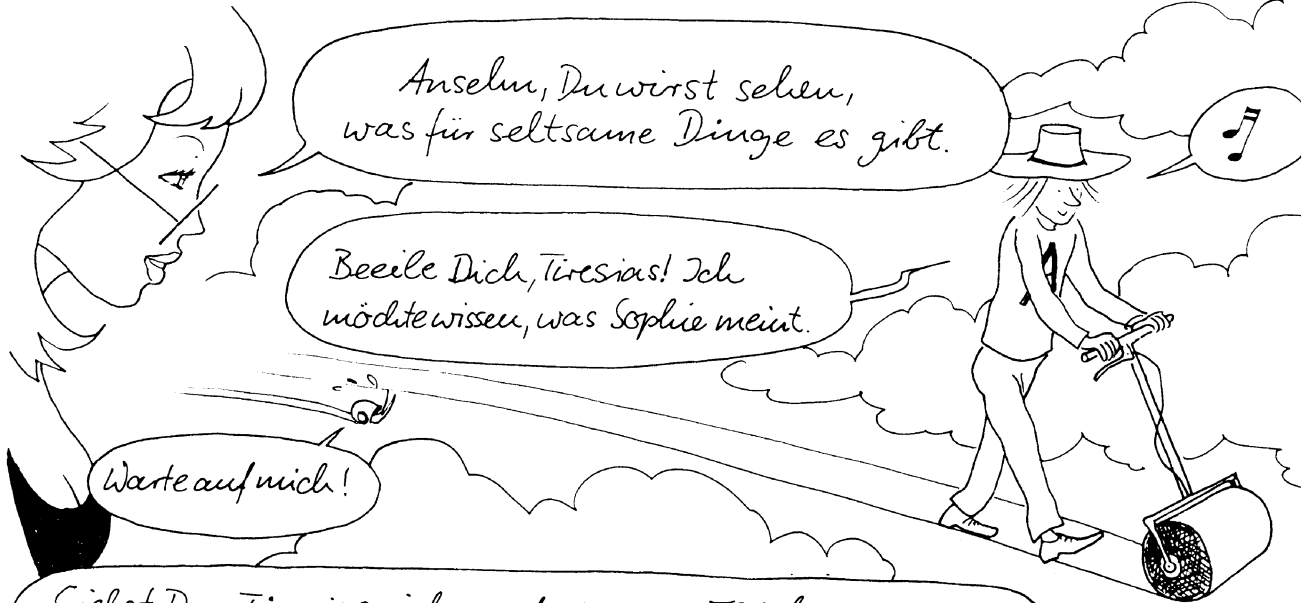 Anselm, Du wirst sehen,
was für seltsame Dinge es gibt.
Beeile Dich, Tiresias! Ich
möchte wissen, was Sophie meint.
Warte auf mich!
A